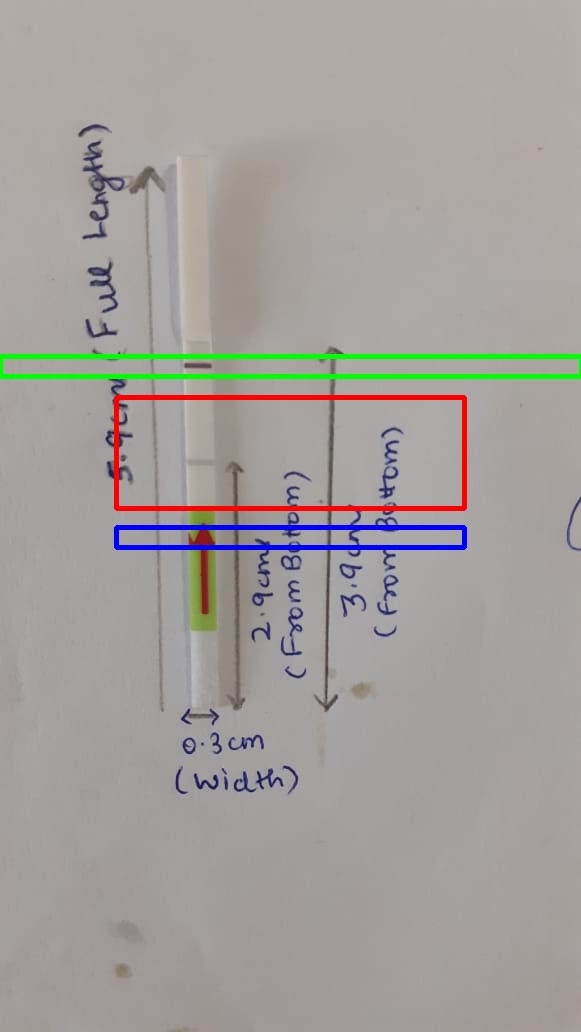 5.9cm (Full Length)
2.9cms
(From Bottom)
3.9cms
(From Bottom)
0.3cm
(Width)